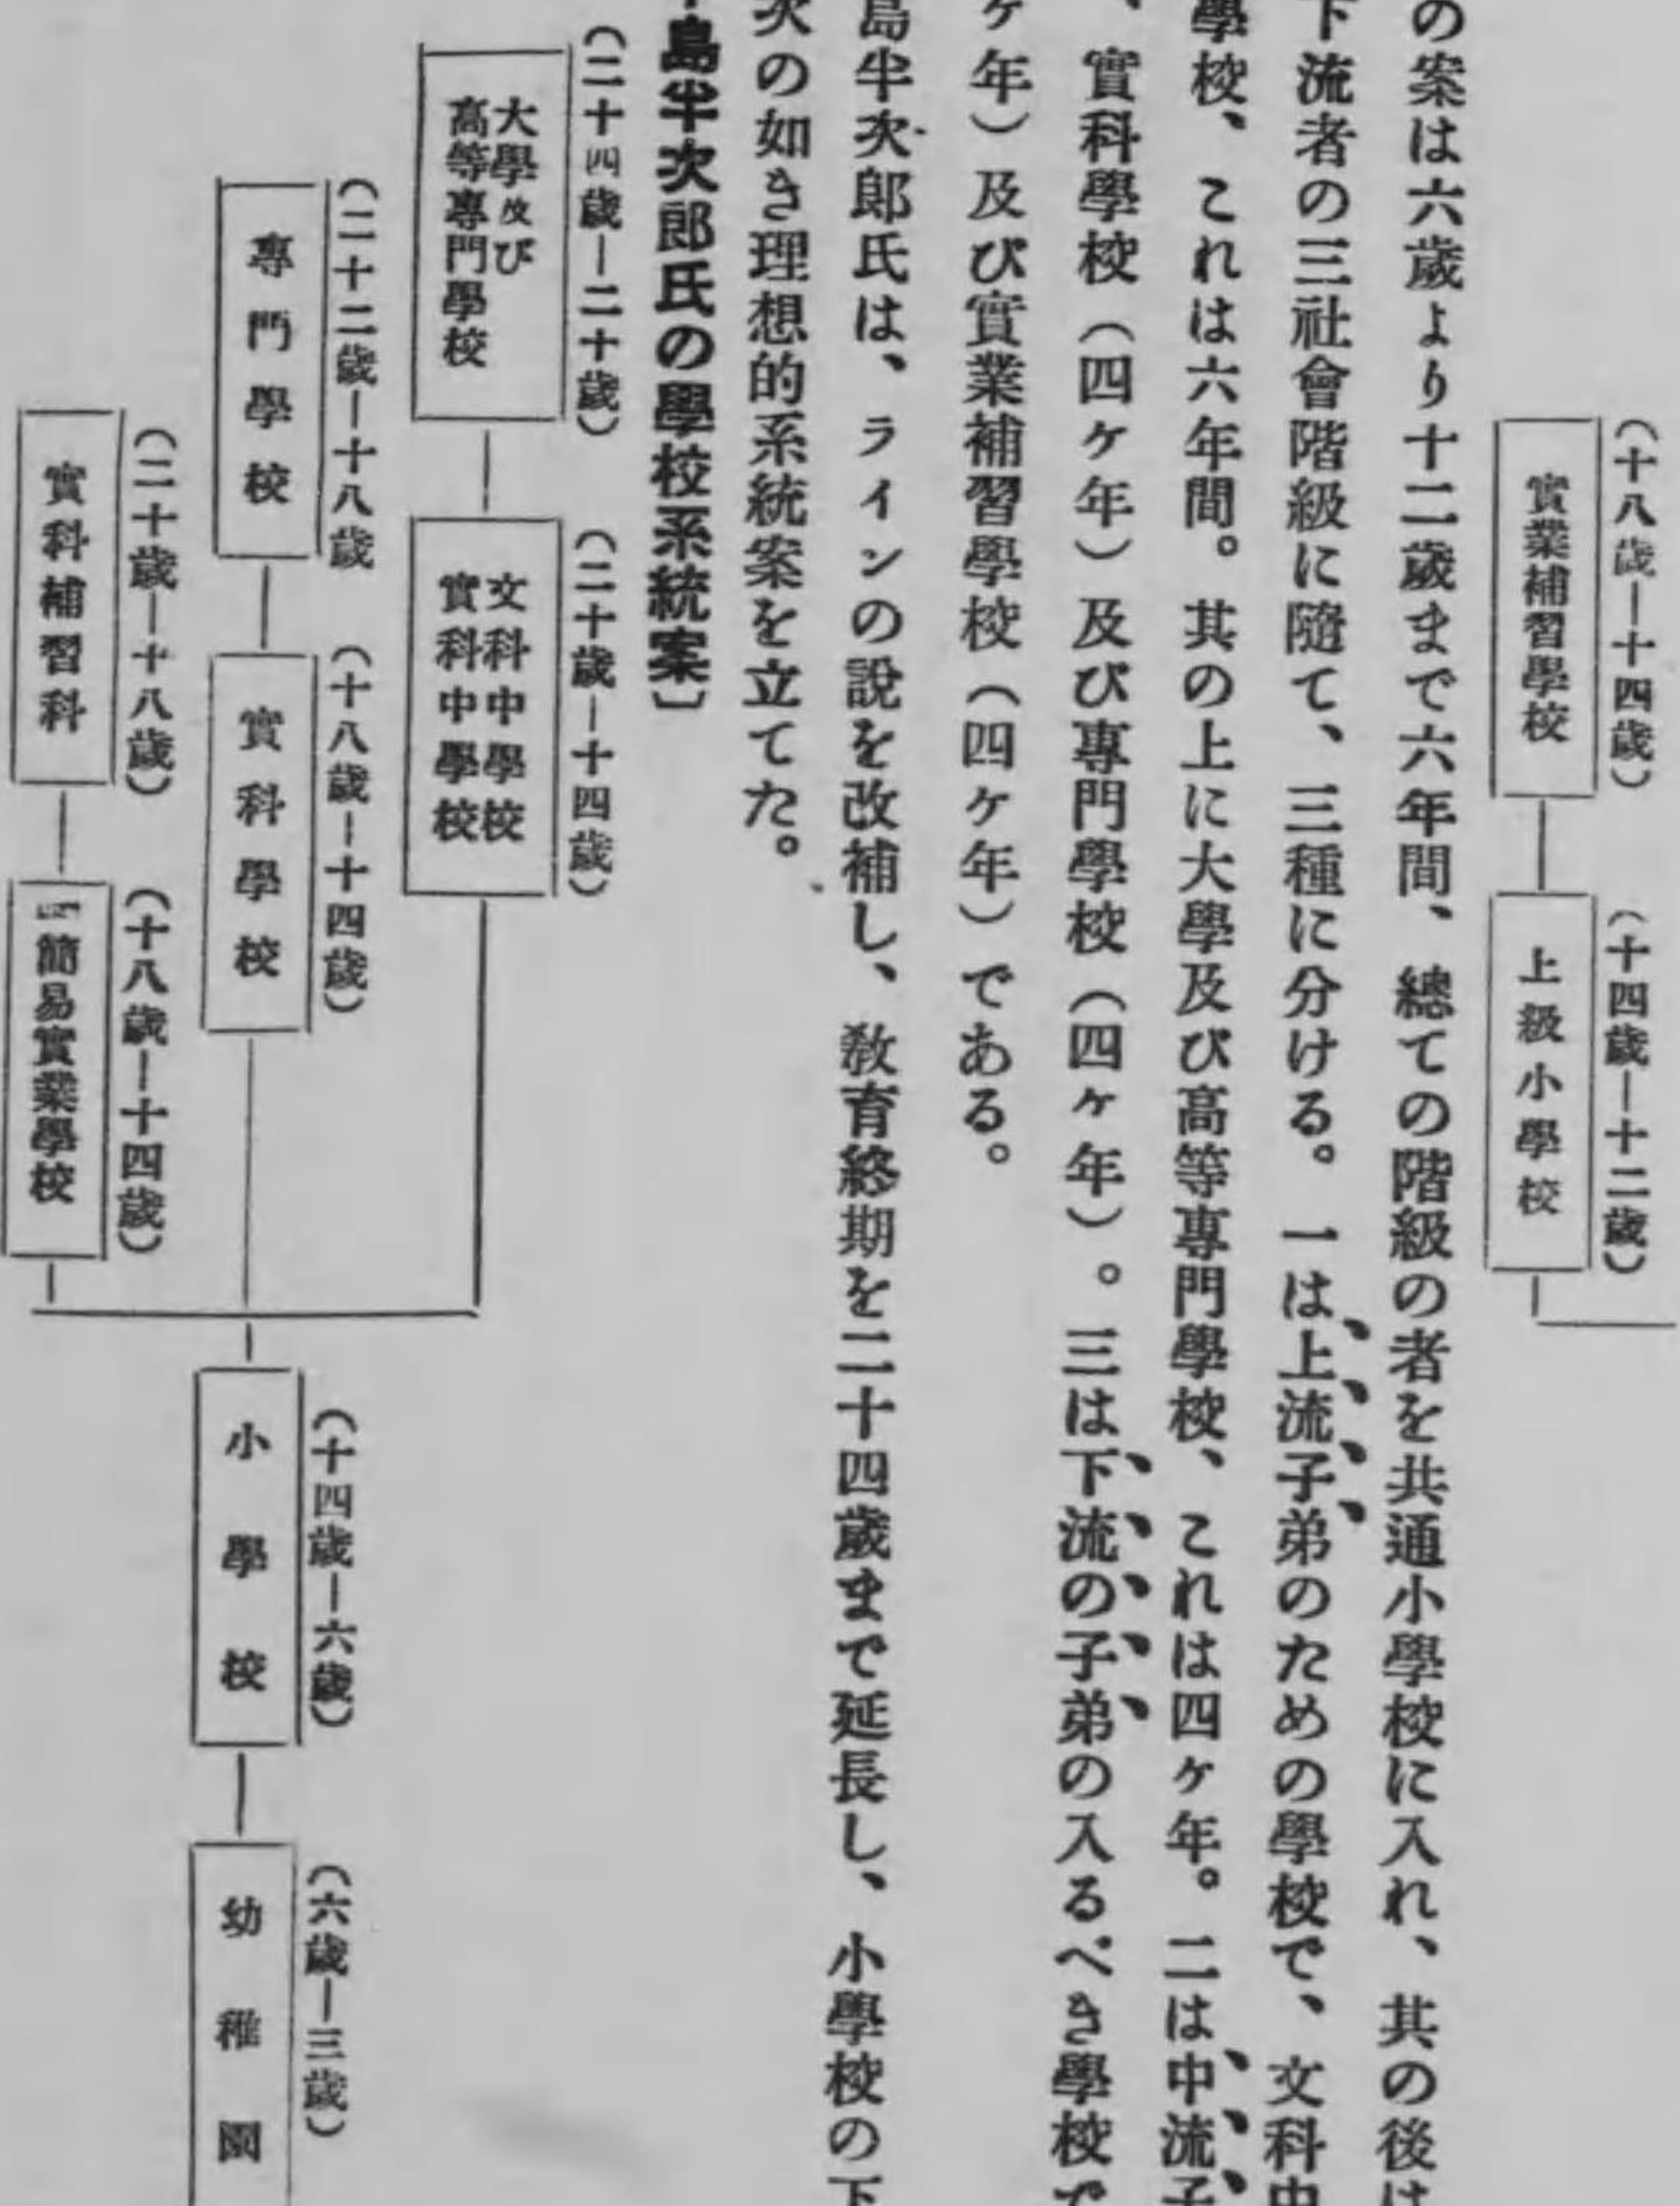 (十八歳―十四歳)
實業補習學校
(十四歳―十二歳)
上級小學校
の案は六歳より十二歳まで六年間、總ての階級の者を共通小學校に入れ、其の後は
下流者の三社會階級に隨て、三種に分ける。一は上流子弟のための學校で、文科中
學校、これは六年間。其の上に大學及び高等專門學校、これは四ヶ年。二は中流子
、實科學校(四ヶ年)及び專門學校(四ヶ年)。三は下流の子弟の入るべき學校で
ヶ年)及び實業補習學校(四ヶ年)である。
島半次郎氏は、ラインの說を改補し、敎育終期を二十四歳まで延長し、小學校の下
次の如き理想的系統案を立てた。
島半次郎氏の學校系統案〕
(二十四歳―二十歳)
大學及び
高等專門學校
(二十歳―十四歳)
文科中學校
實科中學校
(二十二歳―十八歳
專門學校
(十八歳―十四歳)
實科學校
(十四歳―六歳)
小學校
(六歳―三歳)
幼稚園
(二十歳―十八歳)
實科補習科
(十八歳―十四歳)
簡易實業學校